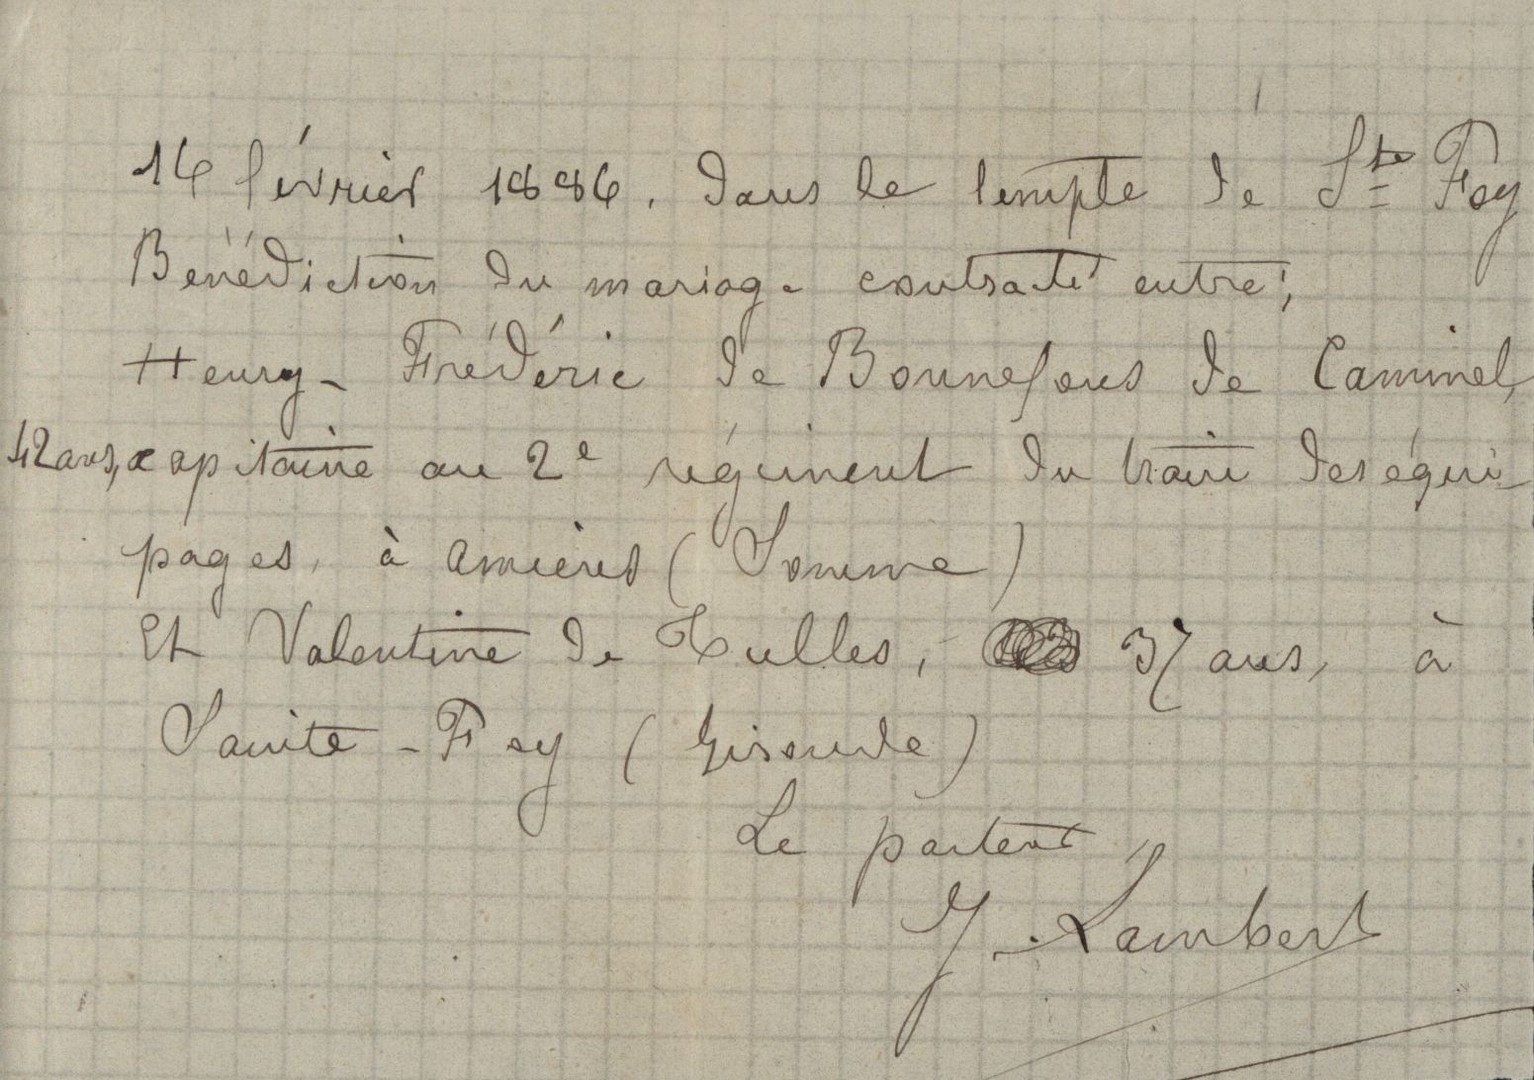 16 février 1886. dans le temple de Ste Foy
Bénédiction du mariage contracté entre;
Henry-Frédéric de Bonnefous de Caminel,
42 ans, capitaine au 2e régiment du train des équi-
pages, à Amiens (Somme)
Et Valentine de Tulles, 37 ans, à
Sainte-Foy (Gironde)
Le pasteur
J. Lambert